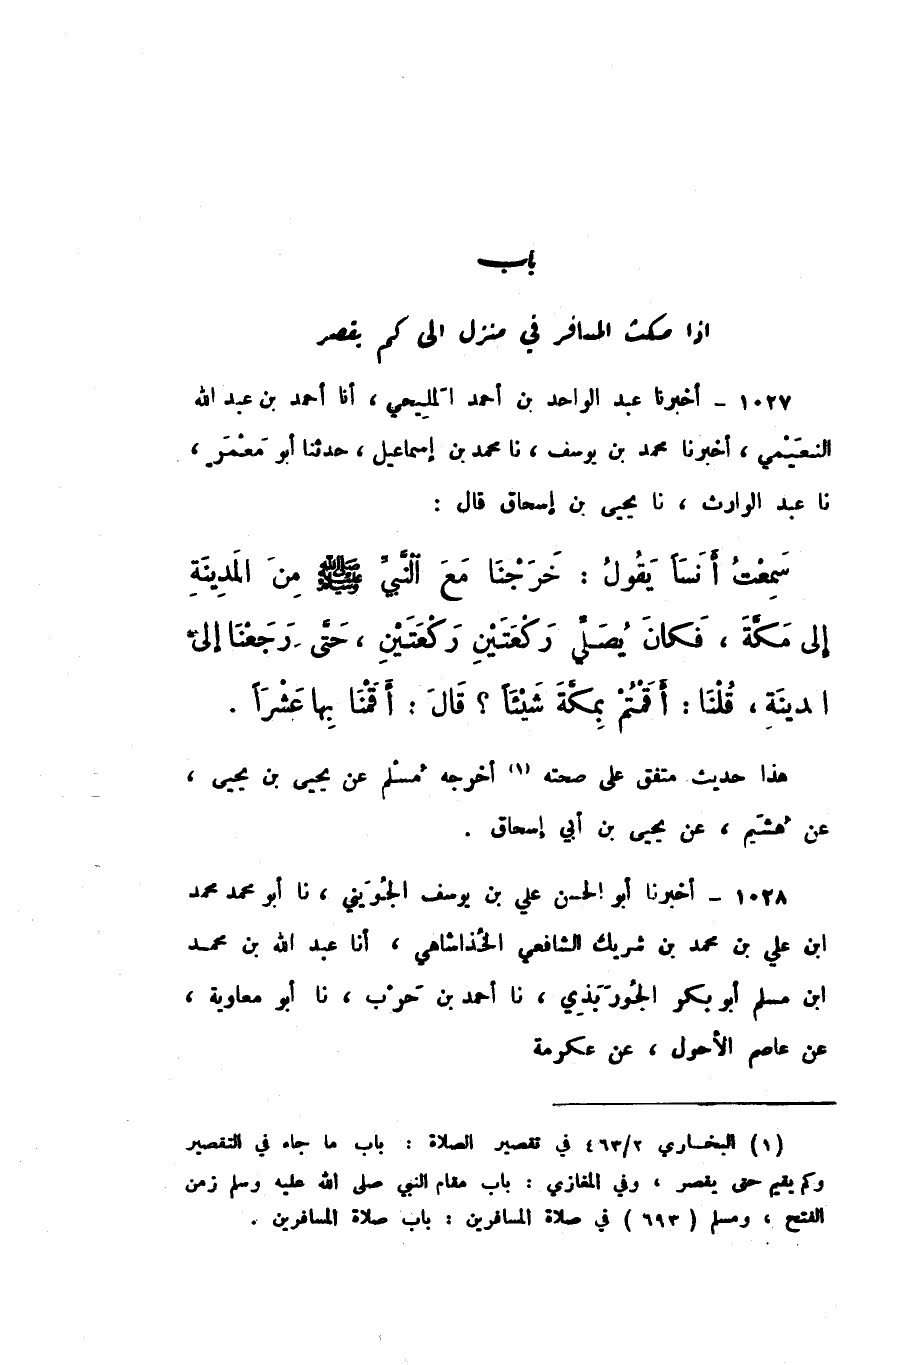 باب
اذا مكث المسافر في منزل الى كم يقصر
١٠٢٧ – أخبرنا عبد الواحد بن أحمد المليحي ، أنا أحمد بن عبد الله
النعيمي ، أخبرنا محمد بن يوسف ، نا محمد بن إسماعيل ، حدثنا أبو معمر ،
نا عبد الوارث ، نا يحيى بن إسحاق قال :
سَمِعْتُ أَنَسَاً يَقُولُ : خَرَجْنَا مَعَ النَّبِيِّ ﷺ مِنَ المَدِينَةِ
إِلى مَكَّةَ ، فَكانَ يُصَلِّي رَكْعَتَيْنِ رَكْعَتَيْنِ ، حَتَّى رَجَعْنَا إِلى
المدينَةِ ، قُلْنَا : أَقَمْتُمْ بِمكَّةَ شَيْئَاً ؟ قَالَ : أَقَمْنَا بِها عَشْرَاً .
هذا حديث متفق على صحته (١) أخرجه مُسْلم عن يحيى بن يحيى ،
عن هُشَيم ، عن يحيى بن أبي إسحاق .
١٠٢٨ – أخبرنا أبو الحسن علي بن يوسف الجُوَيني ، نا أبو محمد محمد
ابن علي بن محمد بن شريك الشافعي الخُذاشاهي ، أنا عبد الله بن محمد
ابن مسلم أبو بكر الجُورَبَذي ، نا أحمد بن حَرْب ، نا أبو معاوية ،
عن عاصم الأحول ، عن عكرمة
(١) البخاري ٤٦٣/٢ في تقصير الصلاة : باب ما جاء في التقصير
وكم يقيم حتى يقصر ، وفي المغازي : باب مقام النبي صلى الله عليه وسلم زمن
الفتح ، ومسلم ( ٦٩٣ ) في صلاة المسافرين : باب صلاة المسافرين .